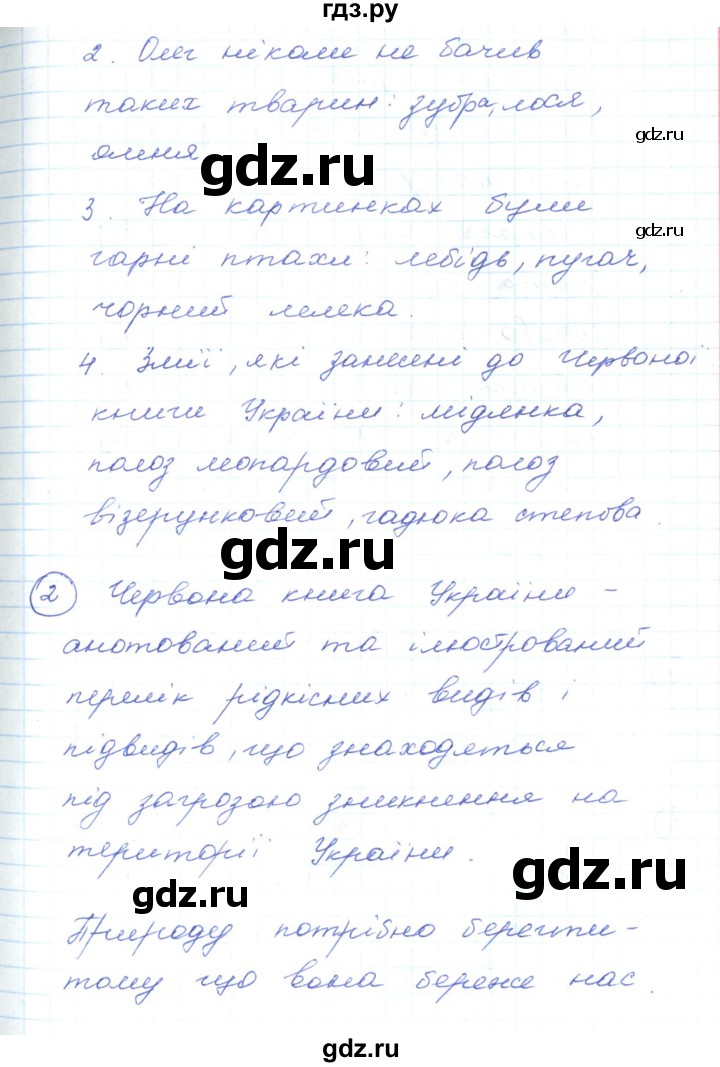 гдз.ру
2. Олег ніколи не бачив
таких тварин: зубра, лося,
gdz.ru
оленя.
gdz.ru
3. На картинках були
gdz.ru
гарні птахи: лебідь, пугач,
чорний лелека.
4. Змії, які занесені до Червоної
книги України: мідянка,
полоз леопардовий, полоз
візерунковий, гадюка степова.
gdz.ru
2 Червона книга України -
анотований та ілюстрований
перелік рідкісних видів і
підвидів, що знаходяться
під загрозою зникнення на
території України.
gdz.ru
gdz.ru
Природу потрібно берегти -
тому що вона береже нас.
gdz.ru